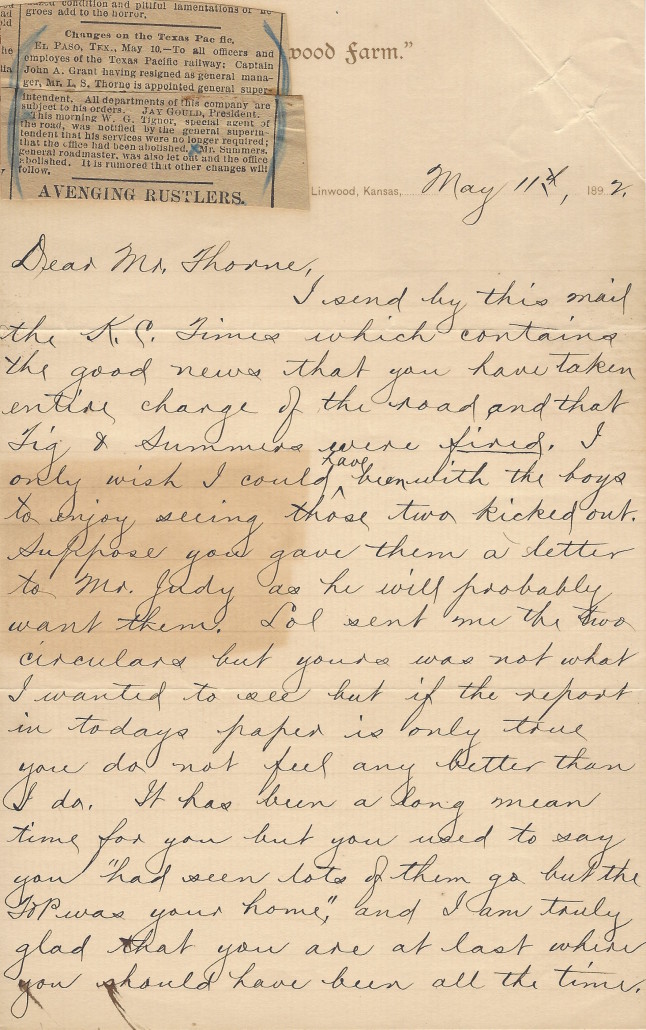 condition and pitiful lamentations of ne
groes add to the horror.
Changes on the Texas Pacific.
EL PASO, TEX., May 10.—To all officers and
employes of the Texas Pacific railway; Captain
John A. Grant having resigned as general mana-
ger, Mr. L. S. Thorne is appointed general super-
intendent. All departments of this company are
subject to his orders. JAY GOULD, President.
This morning W. G. Tignor, special agent of
the road, was notified by the general superin-
tendent that his services were no longer required;
that the office had been abolished. Mr. Summers,
general roadmaster, was also let out and the office
abolished. It is rumored that other changes will
follow.
AVENGING RUSTLERS.
wood Farm."
Linwood, Kansas, May 11th, 1892.
Dear Mr. Thorne,
I send by this mail
the K. C. Times which contains
the good news that you have taken
entire charge of the road and that
Tig & Summers were fired. I
only wish I could have been with the boys
to enjoy seeing those two kicked out.
Suppose you gave them a letter
to Mr. Judy as he will probably
want them. Lol sent me the two
circulars but yours was not what
I wanted to see but if the report
in todays paper is only true
you do not feel any better than
I do. It has been a long mean
time for you but you used to say
you "had seen lots of them go but the
T&P was your home", and I am truly
glad that you are at last where
you should have been all the time.